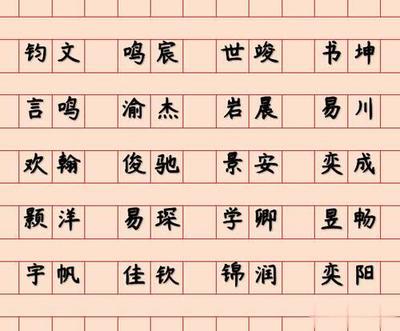 钧文 鸣宸 世竣 书坤
言鸣 渝杰 岩晨 易川
欢翰 俊驰 景安 奕成
颢洋 易琛 学卿 昱畅
宇帆 佳钦 锦润 奕阳